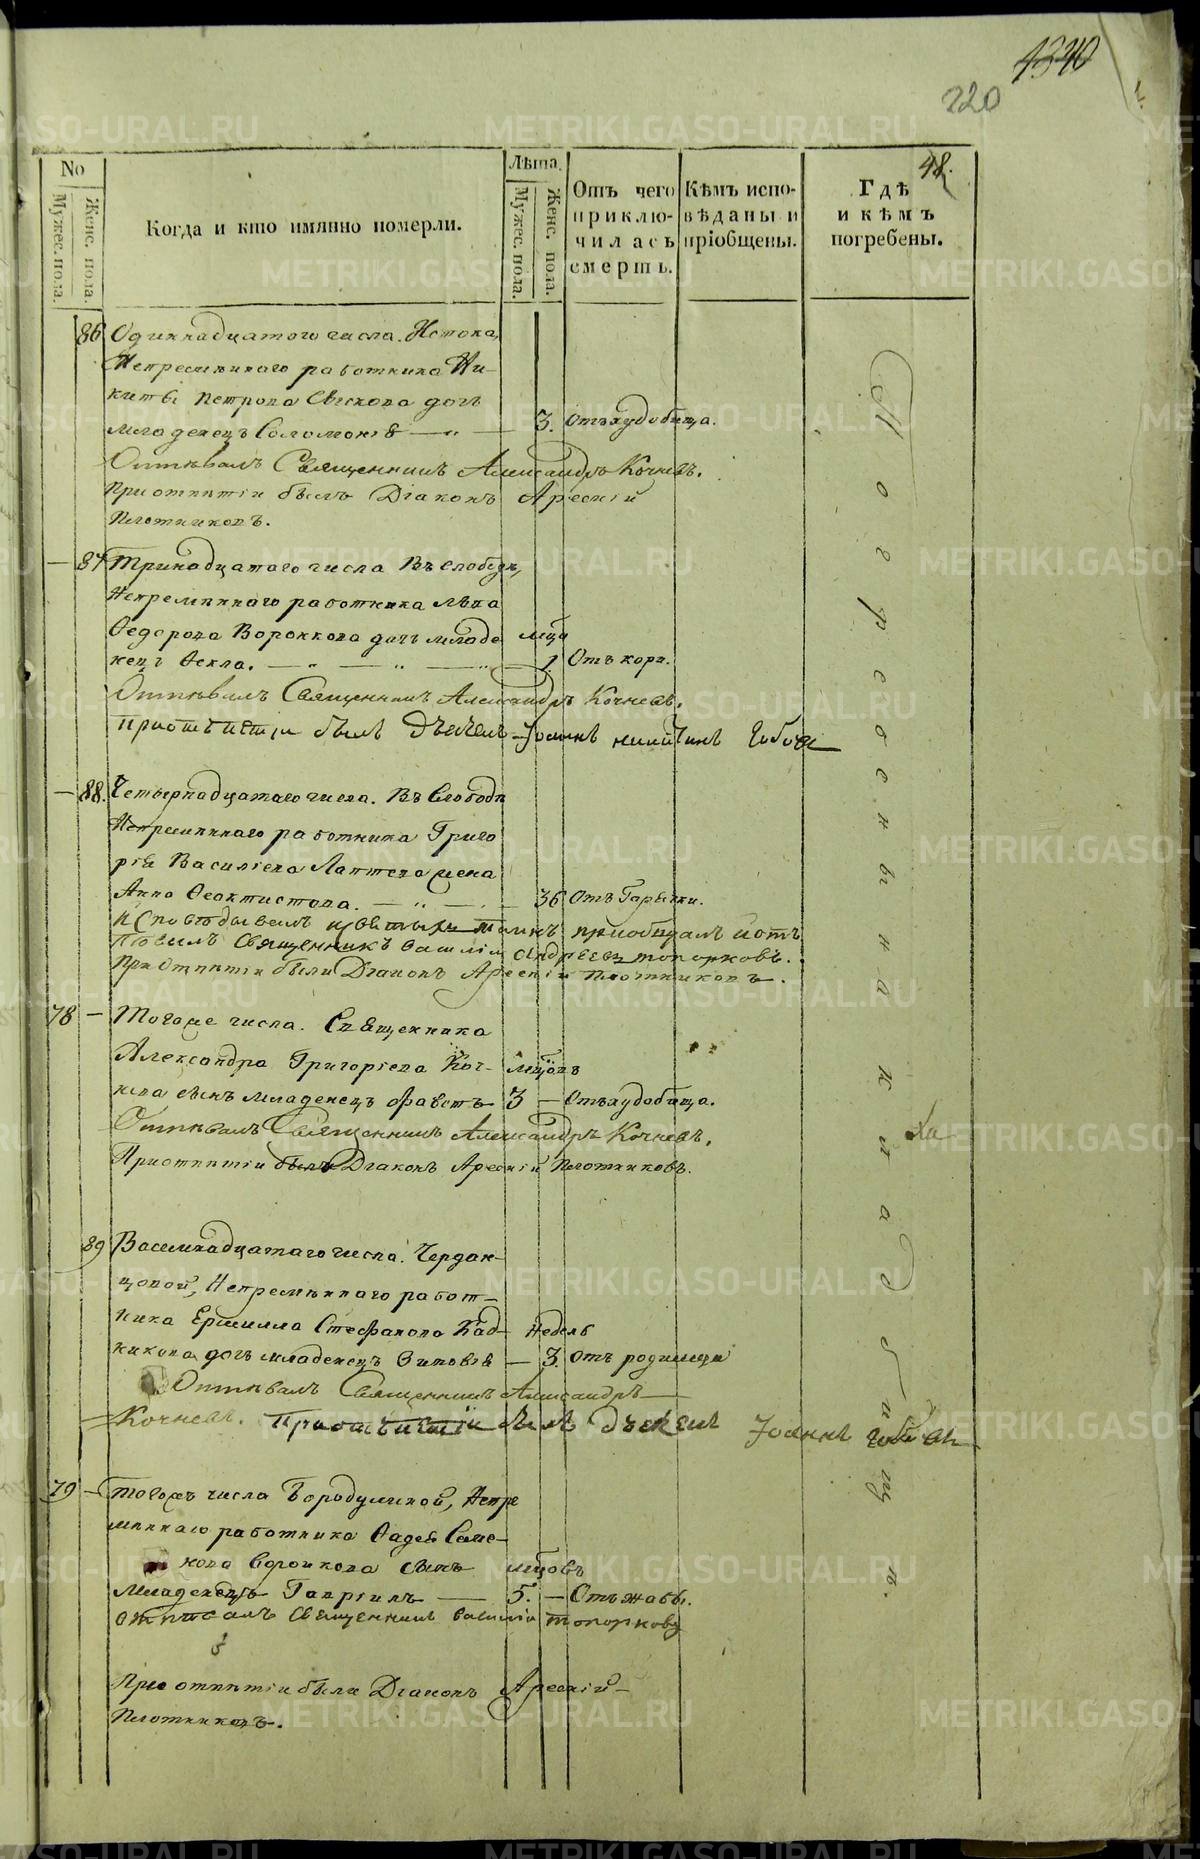 1340
220
48.
No
Мужес. пола.
Женс. пола.
Когда и кто имянно померли.
Лѣта.
Мужес. пола.
Женс. пола.
Отъ чего приклю-
чилась
смерть.
Кѣмъ испо-
вѣданы и
пріобщены.
Гдѣ
и кѣмъ
погребены.
86 Одиннадцатого числа. Истока,
Непремѣннаго работника Ни-
киты Петрова дочь
младенецъ Соломонія — „ — 3. Отъ худобища.
Отпѣвалъ Священникъ Александръ Кочневъ.
При отпѣтіи былъ Діаконъ Арсеній
Плотниковъ.
— 87 Тринадцатаго числа Въ Слободѣ,
Непремѣннаго работника Льва
Федорова Воронкова дочь младе мца
нецъ Фекла. — „ — „ — „ — 1. Отъ кори.
Отпѣвалъ Священникъ Александръ Кочневъ.
При отъпѣтіи былъ Дьячекъ Іоаннъ
— 88. Четырнадцатаго числа. Въ Слободѣ
Непремѣннаго работника Григо
рія Василіева Лаптева жена
Анна Феоктистова. — „ — . — 36 Отъ Горячки.
Исповѣдывалъ и святыхъ таинъ приобщалъ и отъ
Священникъ Василіи Андреевъ Топорковъ.
При отпѣтіи были Діаконъ Арсеній Плотниковъ.
78 — Тогоже числа. Священника
Александра Григоріева Коч- мцовъ
нева сынъ младенецъ Фавстъ 3 — Отъ худобища.
Отпѣвалъ Священникъ Александръ Кочневъ.
При отпѣтіи былъ Діаконъ Арсеній Плотниковъ.
89 Васемнадцатаго числа. Чердан-
цовой, Непремѣннаго работ-
ника Ермилла Стефанова недель
дочь младенецъ Зиновія — 3. Отъ родимца
Отпѣвалъ Священникъ Александръ
Кочневъ. При отъпѣтіи былъ Дьячекъ Іоаннъ
79 — Тогожъ числа Бородулиной, Непре
мѣннаго работника Фадея Семе-
нова сынъ мцовъ
младенецъ Гавріилъ — 5. — Отъ жабы.
отпѣвалъ Священникъ Василіи Топорковъ
При отпѣтіи были Діаконъ Арсеній
Плотниковъ.
На
METRIKI.GASO-URAL.RU